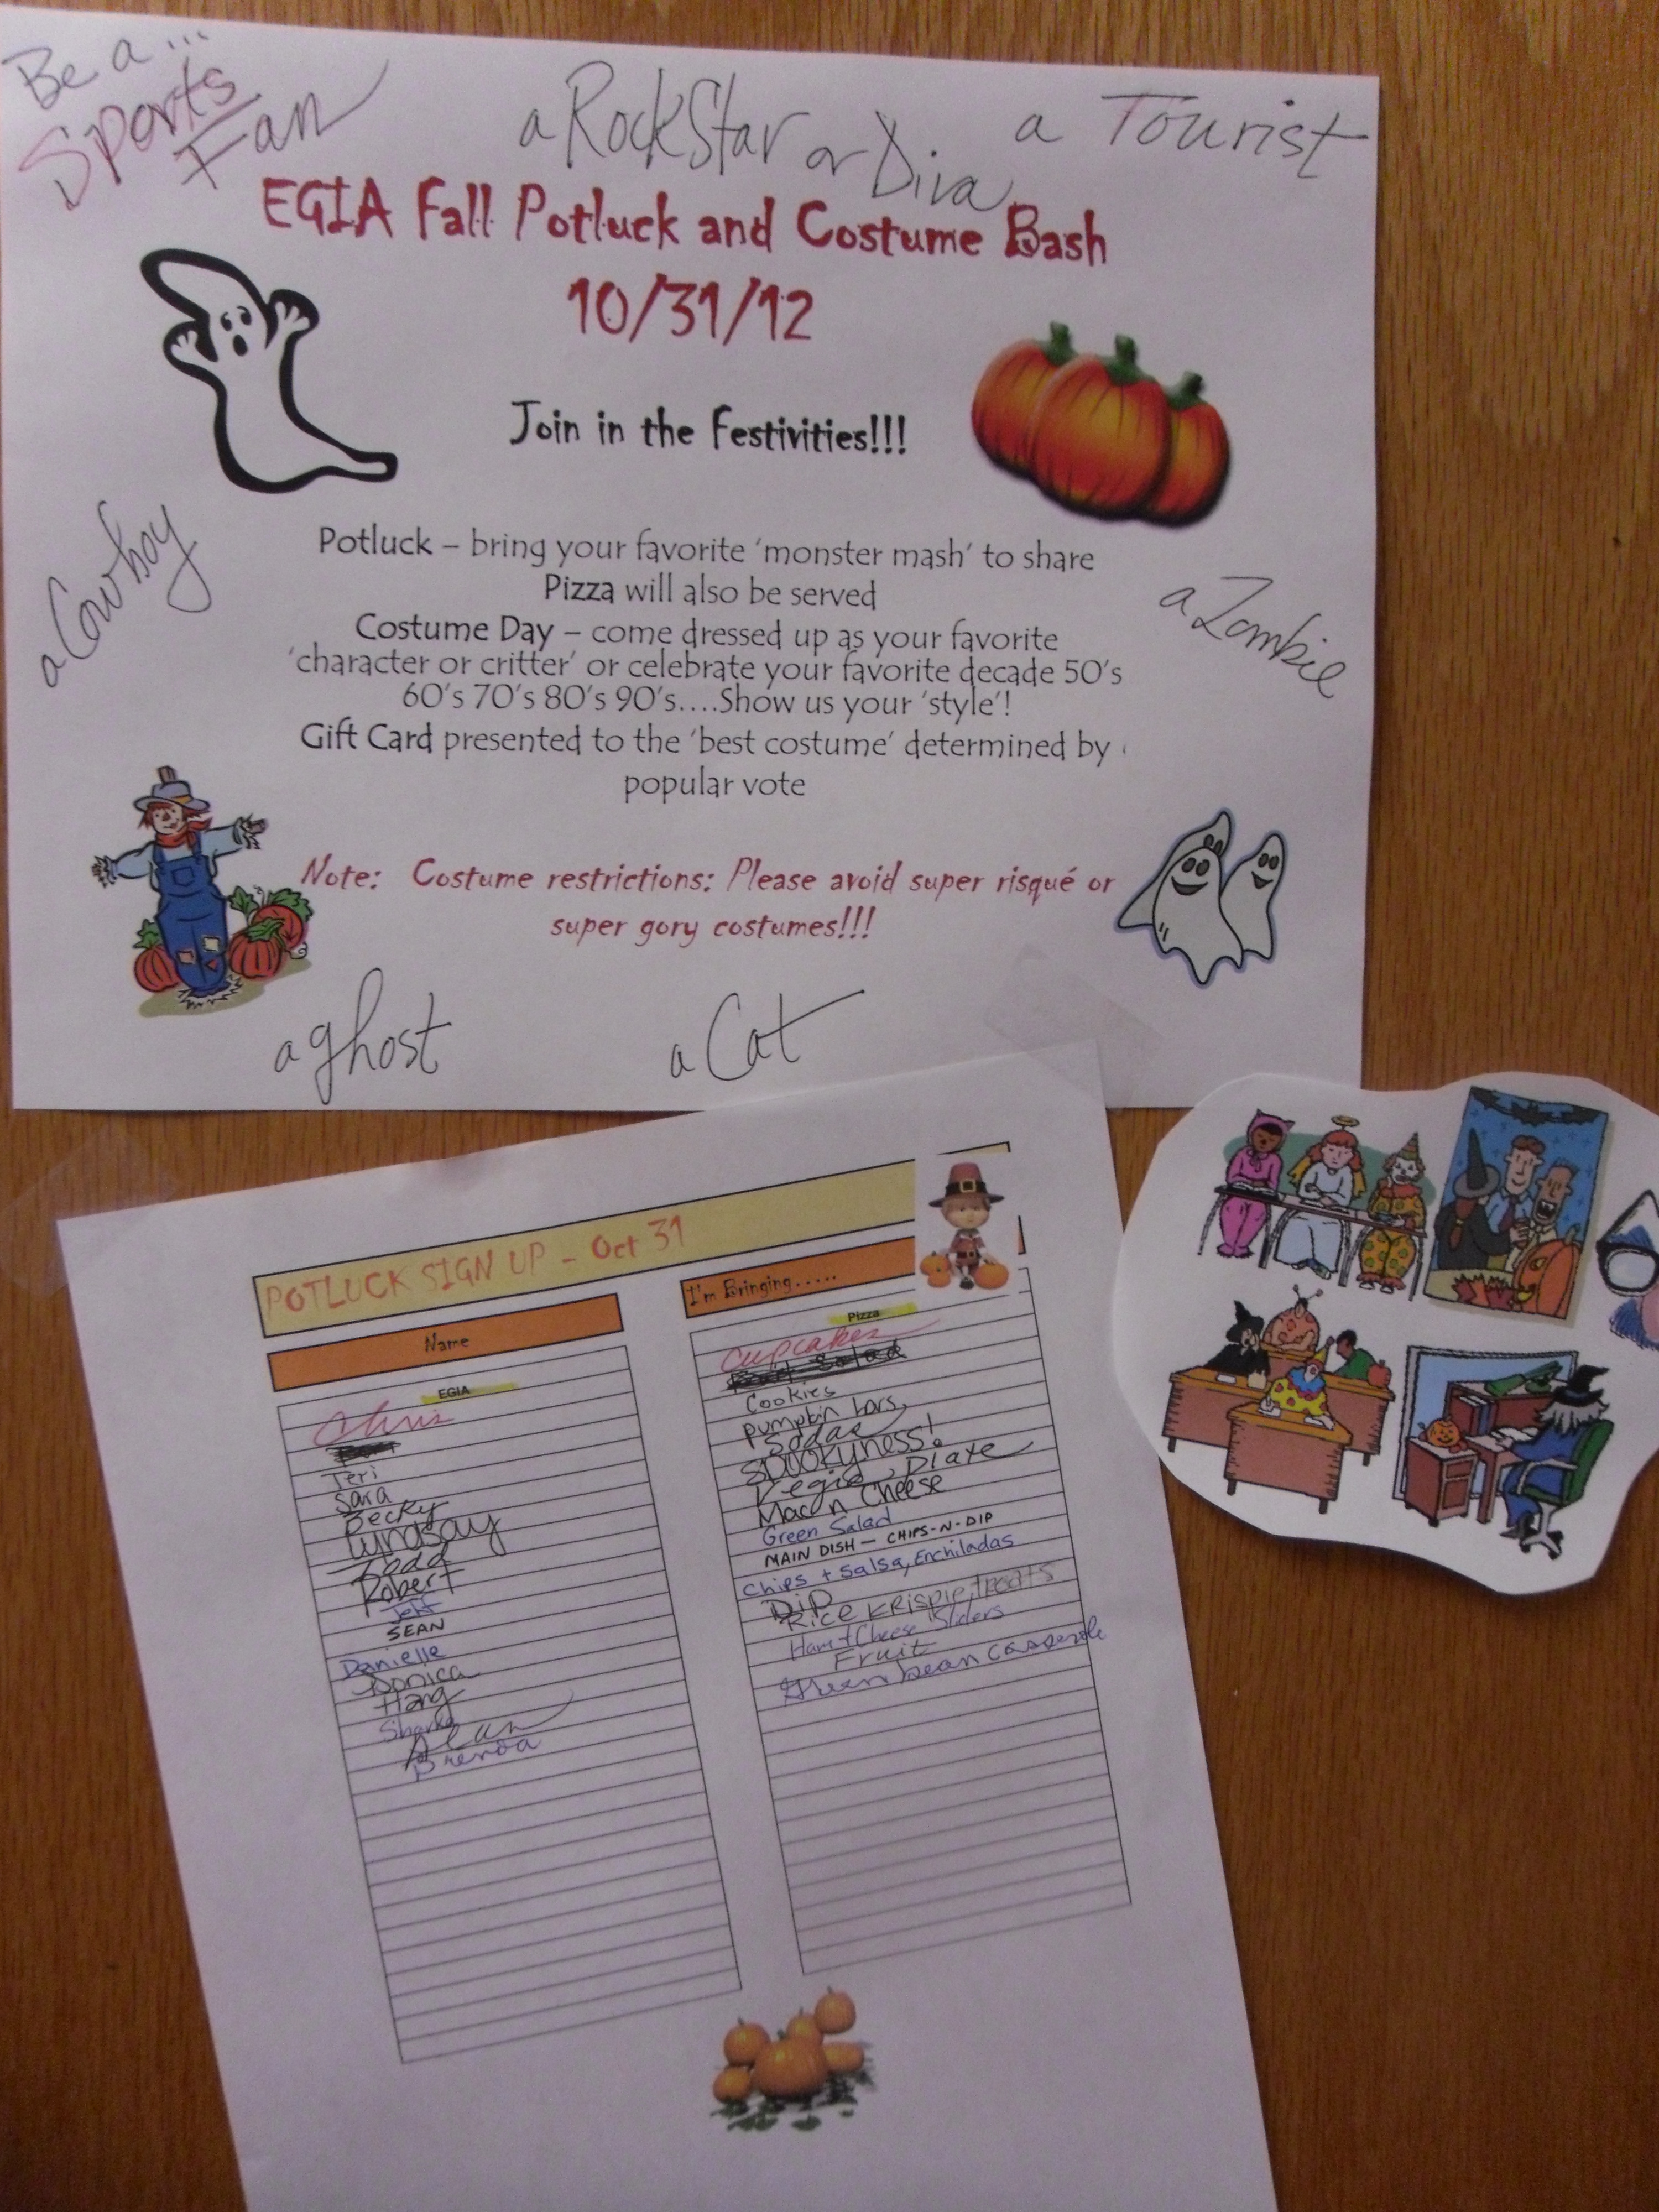 Be a...
Sports
Fan
a RockStar or Diva
a Tourist
EGIA Fall Potluck and Costume Bash
10/31/12
Join in the Festivities!!!
a Cowboy
a Zombie
Potluck – bring your favorite 'monster mash' to share
Pizza will also be served
Costume Day – come dressed up as your favorite
'character or critter' or celebrate your favorite decade 50's
60's 70's 80's 90's....Show us your 'style'!
Gift Card presented to the 'best costume' determined by
popular vote
Note: Costume restrictions: Please avoid super risqué or
super gory costumes!!!
a ghost
a Cat
POTLUCK SIGN UP - Oct 31
Name
EGIA
Chris
Teri
Sara
Becky
Lyndsay
Todd
Robert
Jeff
SEAN
Danielle
Donica
Hang
Alan
Brenda
I'm Bringing.....
Pizza
Cupcakes
Cookies
pumpkin bars
Sodas
SPOOKYNESS!
Vegie Plate
Mac n Cheese
Green Salad
MAIN DISH — CHIPS-N-DIP
Chips + Salsa, Enchiladas
Dip
Rice Krispie treats
Ham + Cheese Sliders
Fruit
Green bean casserole